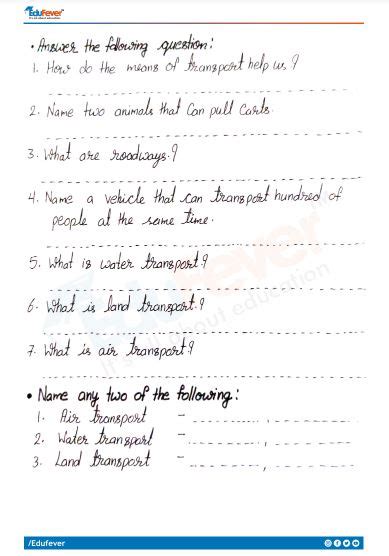 EduFever
It's all about education
• Answer the following question:
1. How do the means of transport help us?
2. Name two animals that Can pull Carts.
3. What are roadways?
4. Name a vehicle that can transport hundred of
people at the same time.
5. What is water transport?
6. What is land transport?
7. What is air transport?
• Name any two of the following:
1. Air transport - ,
2. Water transport - ,
3. Land transport - ,
EduFever
It's all about education
/Edufever